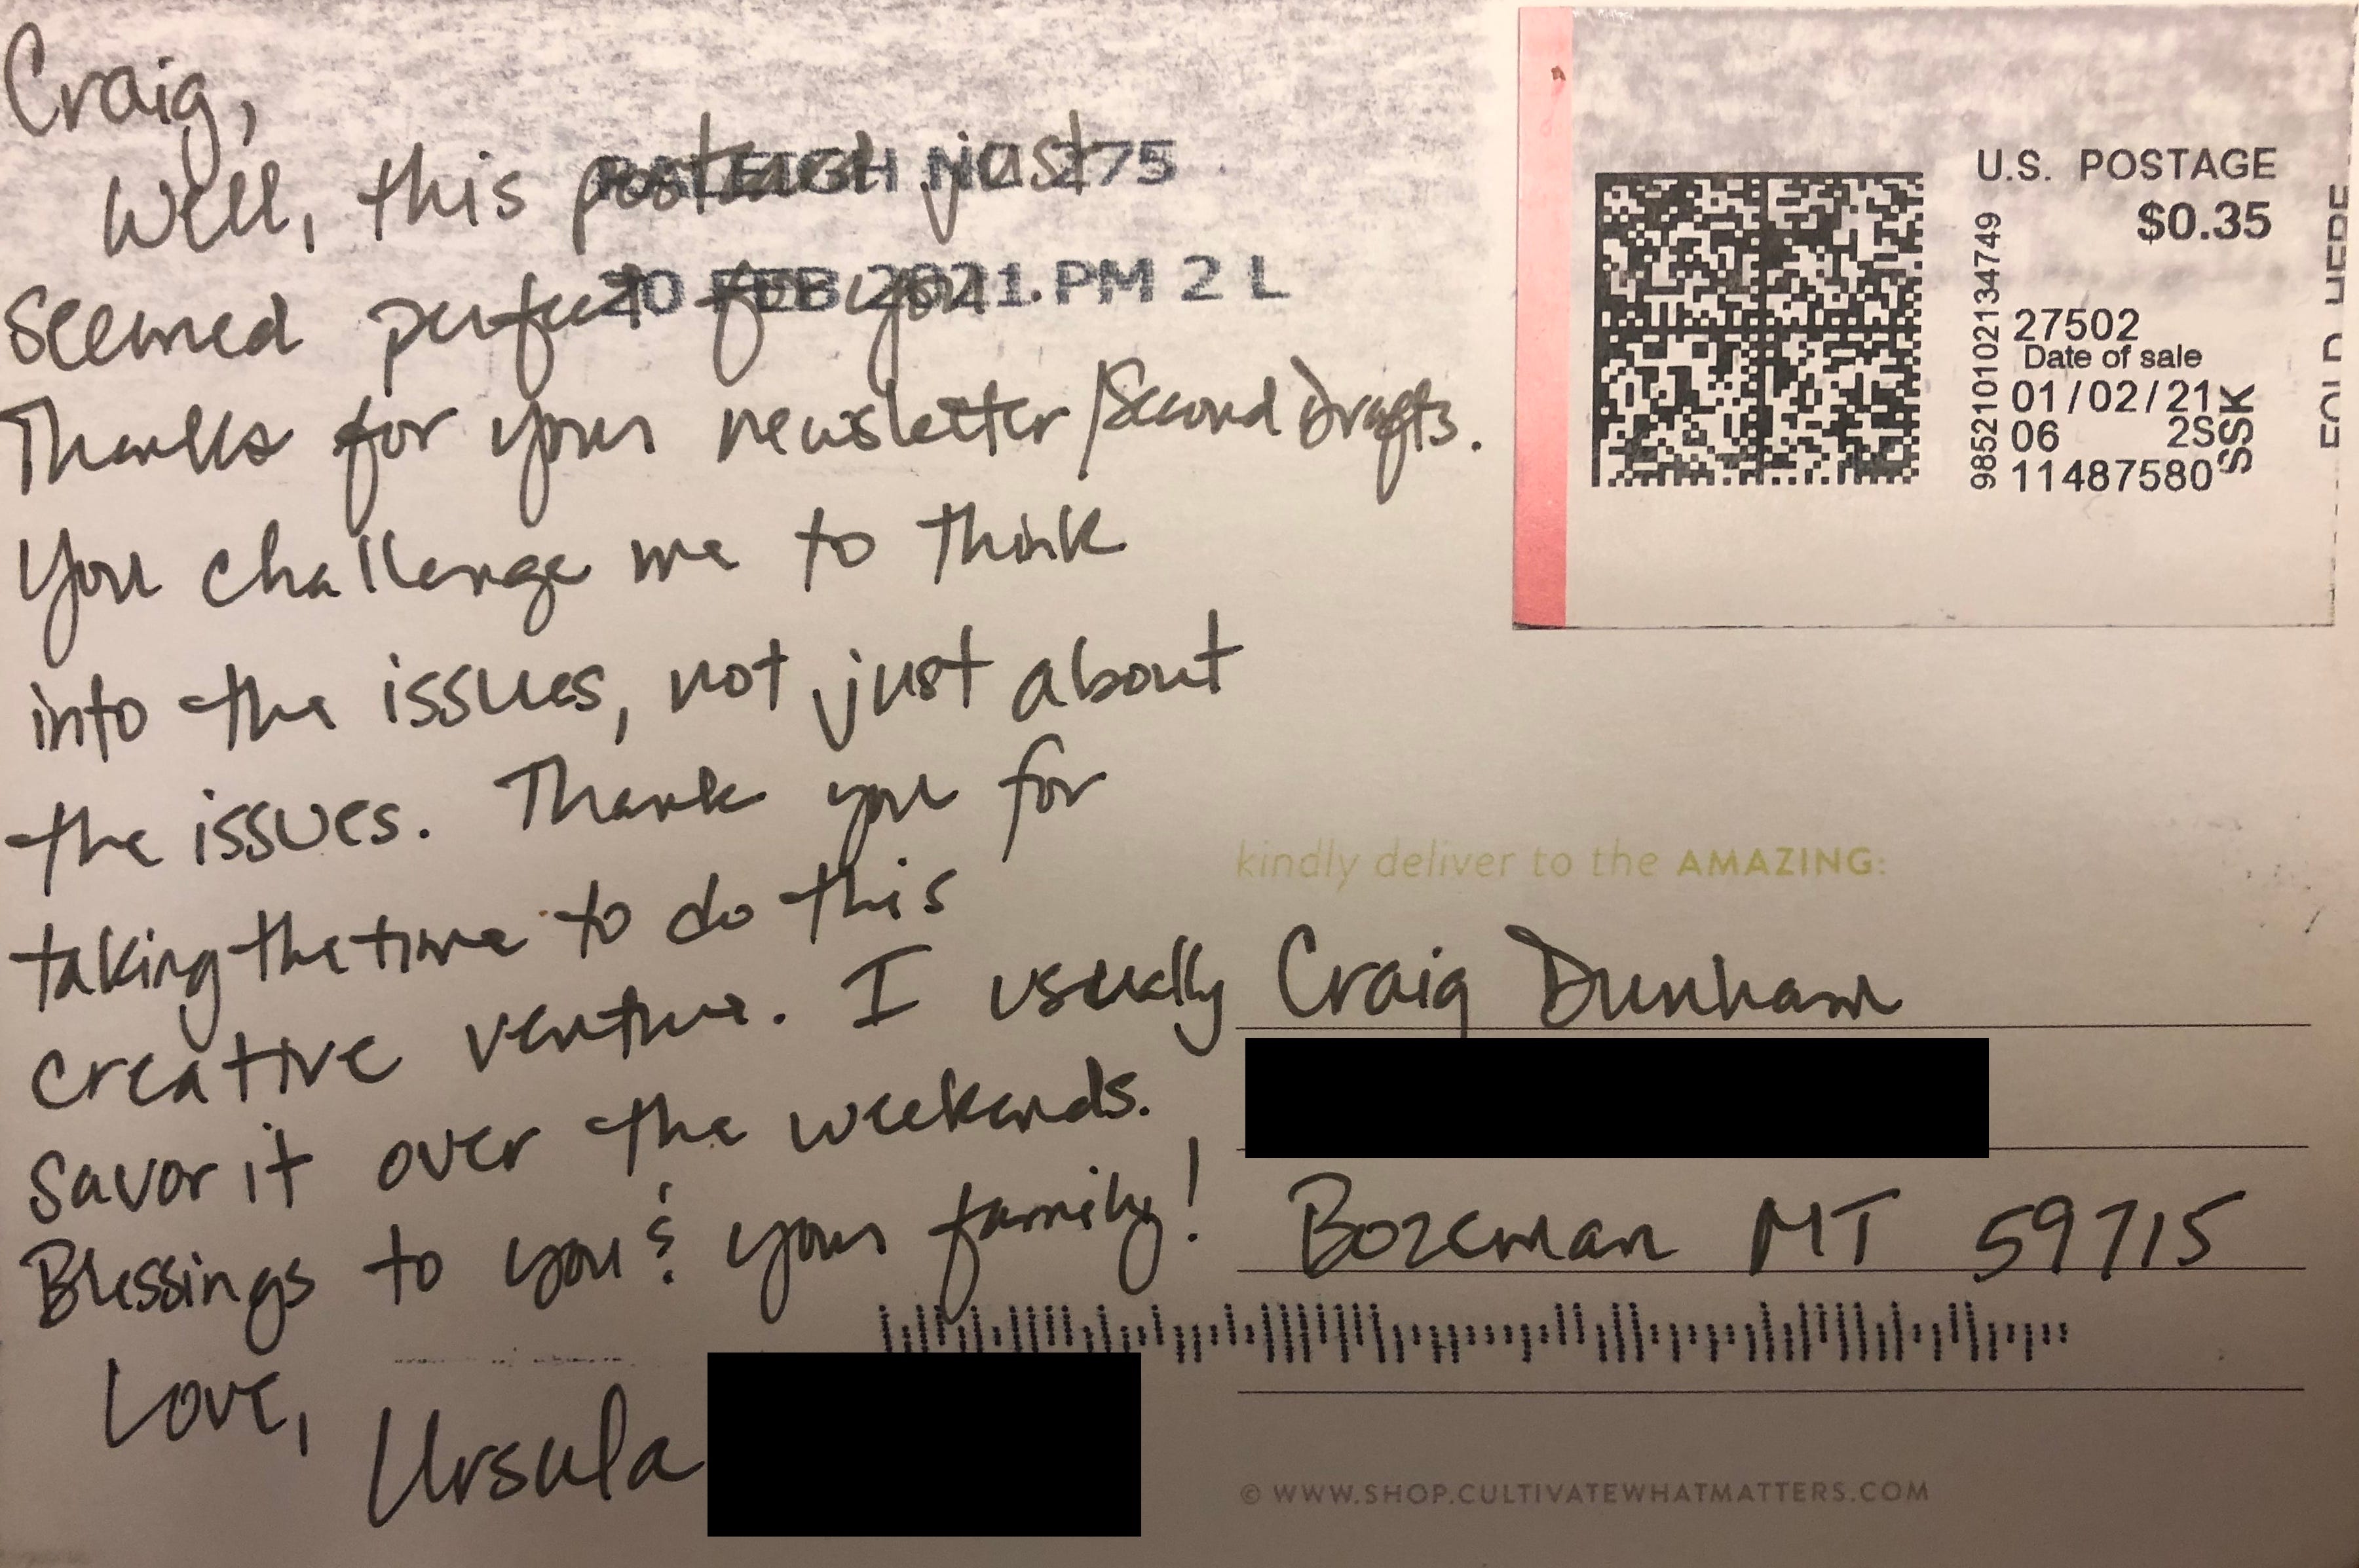 Craig,
Well, this postcard just
seemed perfect for you.
Thanks for your newsletter/Second Drafts.
You challenge me to think
into the issues, not just about
the issues. Thank you for
taking the time to do this
creative venture. I usually
savor it over the weekends.
Blessings to you & your family!
Love,
Ursula
RALEIGH NC 275
20 FEB 2021 PM 2 L
U.S. POSTAGE
$0.35
985210102134749
27502
Date of sale
01/02/21
06 2S
SSK
11487580
FOLD HERE
kindly deliver to the AMAZING:
Craig Dunham
Bozeman MT 59715
© WWW.SHOP.CULTIVATEWHATMATTERS.COM